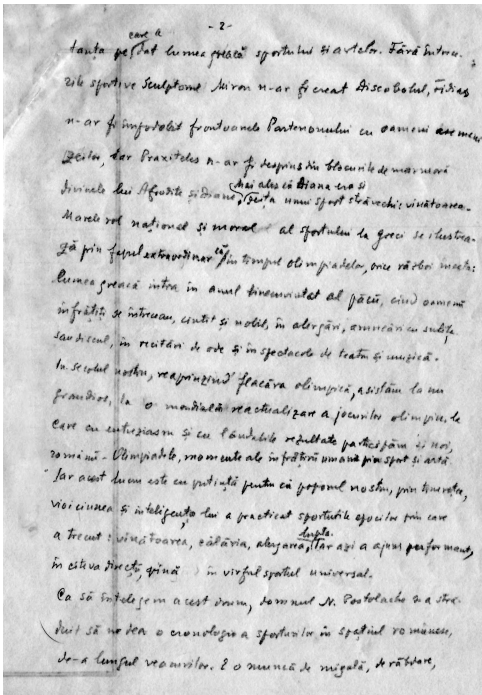 - 2 -
care a
tanța pe dat lumea greacă sportului și artelor. Fără întrece-
rile sportive sculptorul Miron n-ar fi creat Discobolul, Fidias
n-ar fi împodobit frontoanele Partenonului cu oameni asemeni
zeilor, iar Praxiteles n-ar fi desprins din blocurile de marmoră
mai ales că Diana era și
divinele lui Afrodite și Diane, zeița unui sport străvechi: vînătoarea.
Marele rol național și moral al sportului la greci se ilustrea-
că
ză prin faptul extraordinar în timpul olimpiadelor, orice război înceta:
lumea greacă intra în anul binecuvîntat al păcii, cînd oamenii
înfrățiți se întreceau, cinstit și nobil, în alergări, aruncări cu sulița
sau discul, în recitări de ode și în spectacole de teatru și muzică.
În secolul nostru, reaprinzînd flacăra olimpică, asistăm la un
grandios, la o mondială reactualizare a jocurilor olimpice, la
care cu entuziasm și cu lăudabile rezultate participăm și noi,
românii. Olimpiadele, momente ale înfrățirii umane prin sport și artă.
Iar acest lucru este cu putință pentru că poporul nostru, prin tinerețea,
vioiciunea și inteligența lui a practicat sporturile epocilor prin care
lupta.
a trecut: vînătoarea, călăria, alergarea, Iar azi a ajuns performant,
în cîteva direcții, pînă în vîrful sportului universal.
Ca să înțelegem acest drum, domnul N. Postolache s-a stră-
duit să ne dea o cronologie a sporturilor în spațiul românesc,
de-a lungul veacurilor. E o muncă de migală, de răbdare,